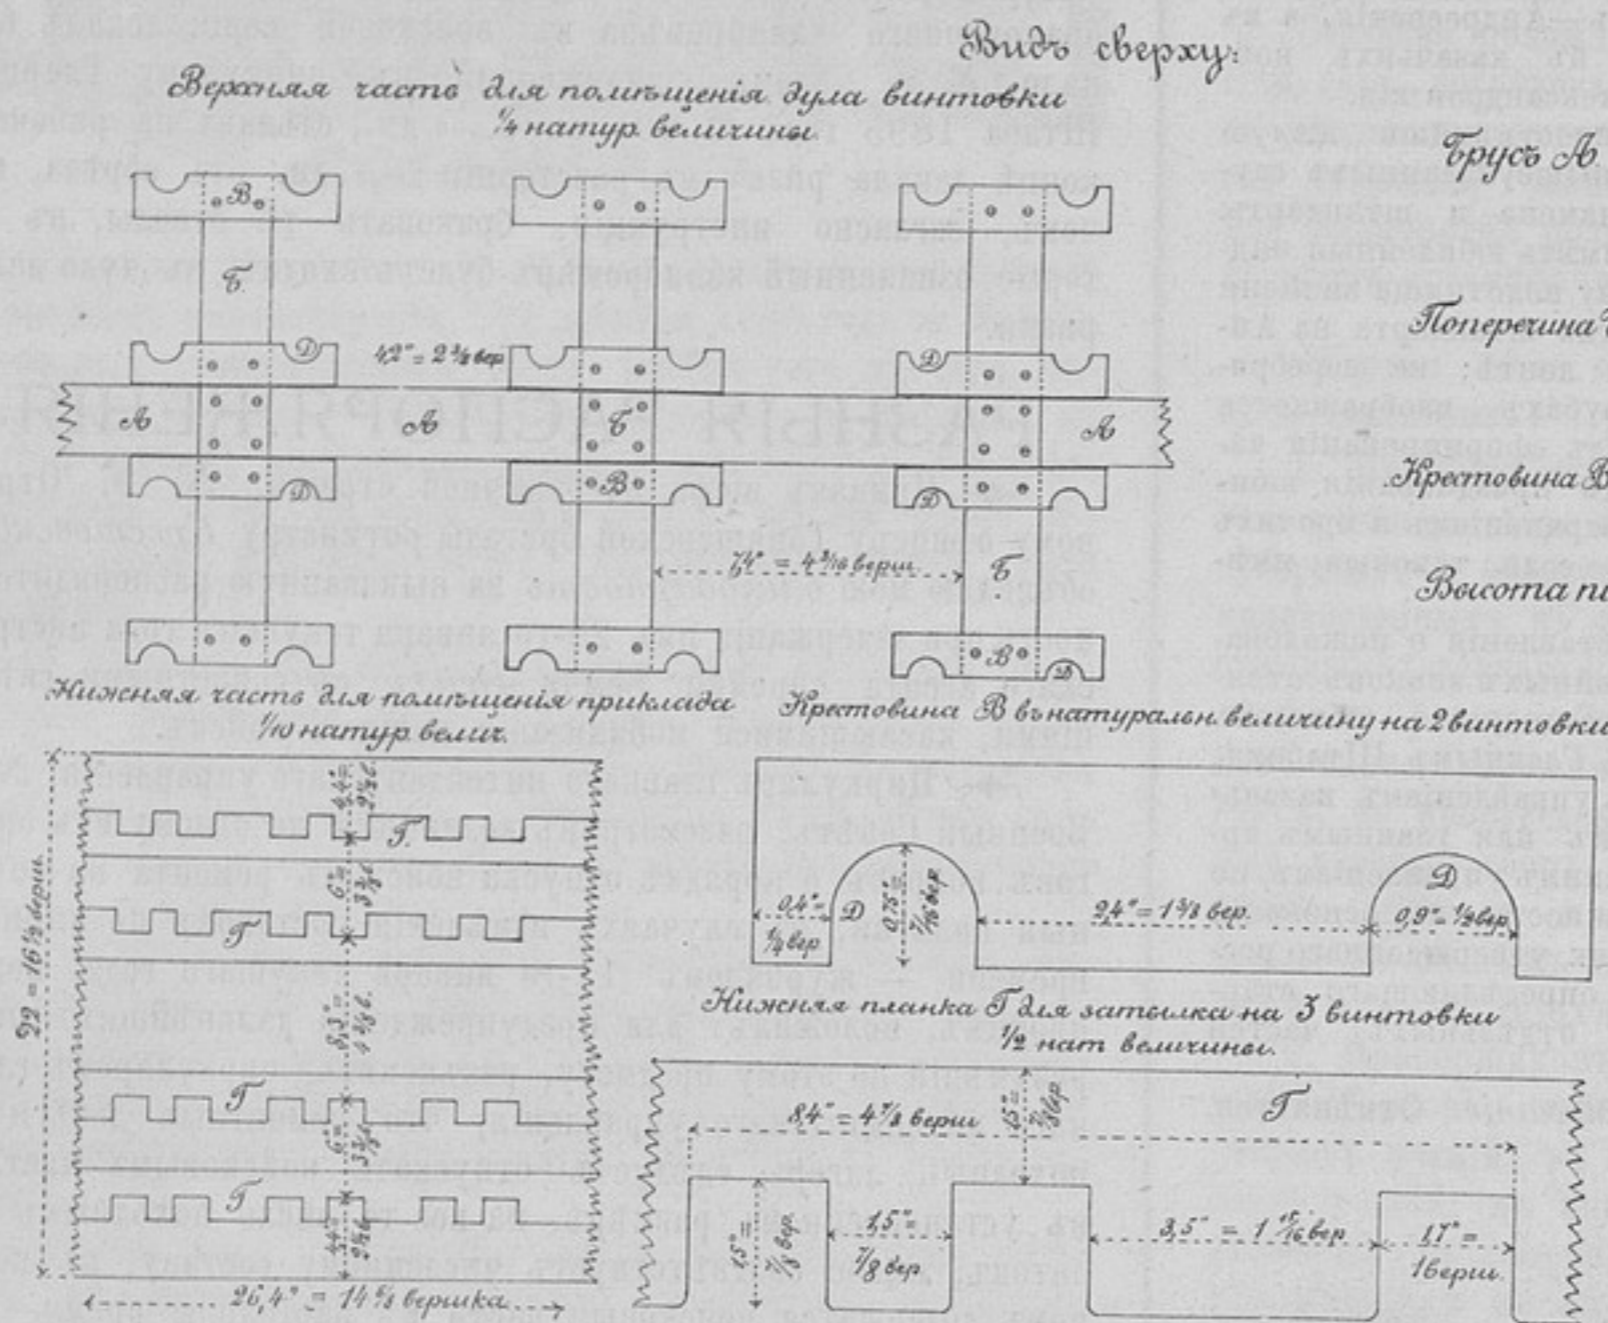 Видъ сверху:
Верхняя часть для помѣщенія дула винтовки
1/4 натур. величины.
Брусъ А
Поперечина
Крестовина В
Высота
В
Б
Д
4,2" = 2 3/8 вер
Д
А
А
Б
А
Д
В
Д
7,4" = 4 3/16 верш.
Б
В
Д
Нижняя часть для помѣщенія приклада
1/10 натур велич.
Крестовина В въ натуральн. величину на 2 винтовки
22 = 16 1/2 верш.
4,4" =
2 1/2 в.
Г.
6" =
3 3/8 в.
Г
8,3" =
4 5/8 в.
Г
6" =
3 3/8 в.
Г
4,4" =
2 1/2 в.
26,4" = 14 5/8 вершка
0,4" =
1/4 вер
Д
0,75" =
7/16 вер.
2,4" = 1 3/8 вер.
Д
0,9" = 1/2 вер.
Нижняя планка Г для затылка на 3 винтовки
1/2 нат величины.
8,4" = 4 7/8 верш
1,5" =
7/8 вер
Г
1,5" =
7/8 вер.
1,5" =
7/8 вер.
3,5" = 1 15/16 вер
1,7" =
1 верш.